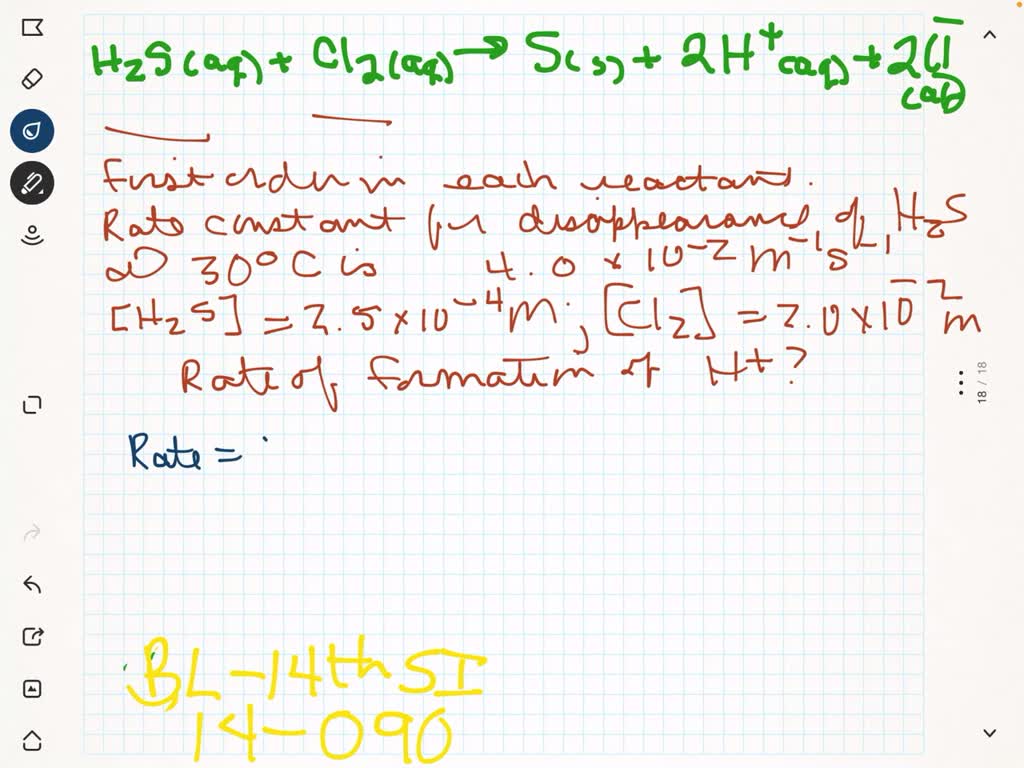 H2S(aq) + Cl2(aq) → S(s) + 2H+(aq) + 2Cl-(aq)
First order in each reactant.
Rate constant for disappearance of H2S
@ 30°C is 4.0 × 10^-2 m^-1 s^-1
[H2S] = 2.5 × 10^-4 M; [Cl2] = 2.0 × 10^-2 m
Rate of formation of H+?
18 / 18
Rate =
BL-14th SI
14-090